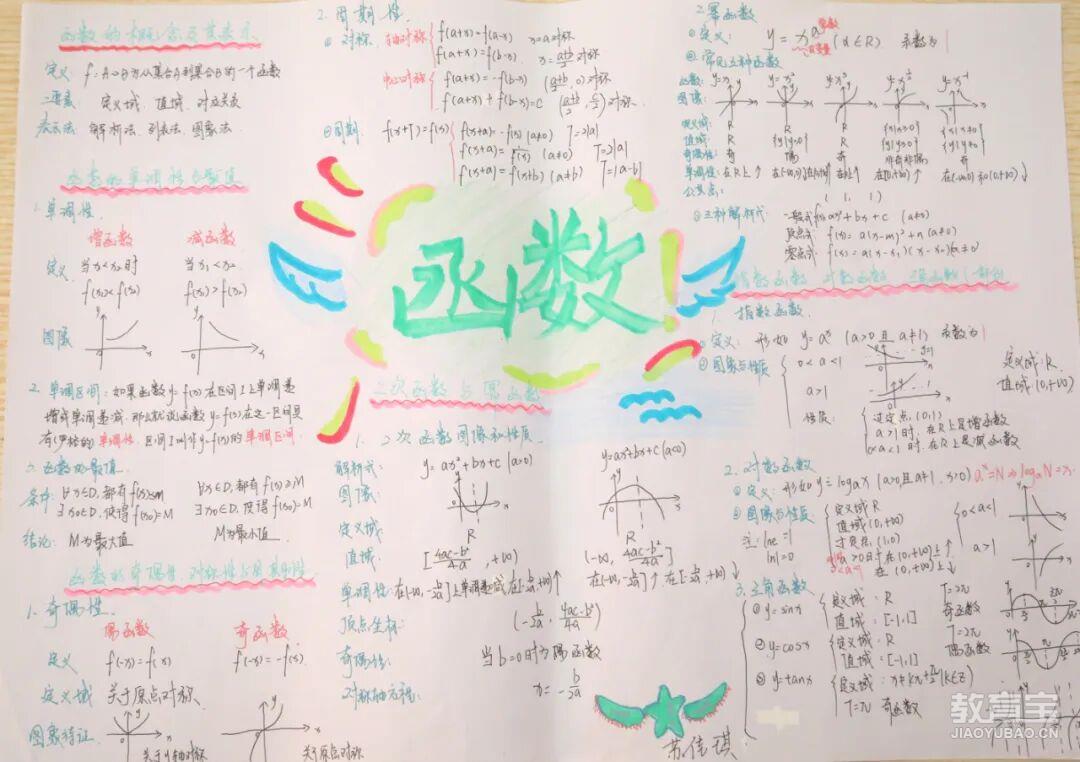 函数的概念及其表示
定义: f:A→B为从集合A到集合B的一个函数
三要素: 定义域, 值域, 对应关系
表示法: 解析法, 列表法, 图象法
函数的单调性与最值
1. 单调性.
增函数 减函数
定义 当x₁<x₂时 当x₁<x₂
f(x₁)<f(x₂) f(x₁)>f(x₂)
图像
2. 单调区间: 如果函数y=f(x)在区间I上单调递
增或单调递减, 那么就说函数y=f(x)在这一区间具
有(严格的)单调性, 区间I叫作y=f(x)的单调区间.
3. 函数的最值
条件: ∀x∈D,都有f(x)≤M ∀x∈D,都有f(x)≥M
∃x₀∈D,使得f(x₀)=M ∃x₀∈D,使得f(x₀)=M
结论: M为最大值 M为最小值
函数的奇偶性、对称性与周期性
1. 奇偶性.
偶函数 奇函数
定义 f(-x)=f(x) f(-x)=-f(x)
定义域 关于原点对称
图象特征
关于y轴对称 关于原点对称
2. 周期性.
① 对称 轴对称 f(a+x)=f(a-x) x=a对称
f(a+x)=f(b-x) x=(a+b)/2 对称
中心对称 f(a+x)=-f(b-x) ((a+b)/2, 0)对称
f(a+x)+f(b-x)=c ((a+b)/2, c/2)对称
②周期 f(x+T)=f(x) f(x+a)=-f(x) (a≠0) T=2|a|
(a≠0) T=2|a|
f(x+a)=f(x+b) (a≠b) T=|a-b|
函数
二次函数与幂函数
1. 二次函数图像和性质
解析式: y=ax²+bx+c (a>0) y=ax²+bx+c (a<0)
图像:
定义域: R R
值域: [(4ac-b²)/4a, +∞) (-∞, (4ac-b²)/4a]
单调性: 在(-∞, -b/2a]上单调递减, 在[-b/2a, +∞)↑ 在(-∞, -b/2a]↑ 在[-b/2a, +∞)↓
顶点坐标: (-b/2a, (4ac-b²)/4a)
奇偶性: 当b=0时为偶函数
对称轴方程: x=-b/2a
苏佳琪
2. 幂函数
①定义: y=xᵃ (x∈R) 系数为1
常数
自变量
②常见五种函数
函数: y=x y=x² y=x³ y=x^½ y=x⁻¹
图像:
定义域: R R R {x|x≥0} {x|x≠0}
值域: R {y|y≥0} R {y|y≥0} {y|y≠0}
奇偶性: 奇 偶 奇 非奇非偶 奇
公共点: (1, 1)
③三种解析式: 一般式f(x)=ax²+bx+c (a≠0)
顶点式: f(x)=a(x-m)²+n (a≠0)
零点式: f(x)=a(x-x₁)(x-x₂)(a≠0)
指数函数 对数函数
1. 指数函数.
①定义: 形如 y=aˣ (a>0且a≠1) 系数为1
②图象与性质 0<a<1 y=1 定义域: R
a>1 值域: (0,+∞)
性质: 过定点(0,1)
a>1时, 在R上是增函数
0<a<1时, 在R上是减函数
2. 对数函数
①定义: 形如y=logₐx (a>0,且a≠1, x>0) aˣ=N⇒logₐN=x
②图象与性质: 定义域R 0<a<1
值域(0,+∞)
注: lne=1 过定点(1,0)
ln1=0 a>0时在(0,+∞)上↑ a>1
在(0,+∞)上↓
3. 三角函数
①y=sinx 定义域: R T=2π
值域: [-1,1] 奇函数
②y=cosx 定义域: R T=2π
值域: [-1,1] 偶函数
③y=tanx 定义域: x≠kπ+π/2(k∈Z)
T=π 奇函数
教育宝
JIAOYUBAO.CN